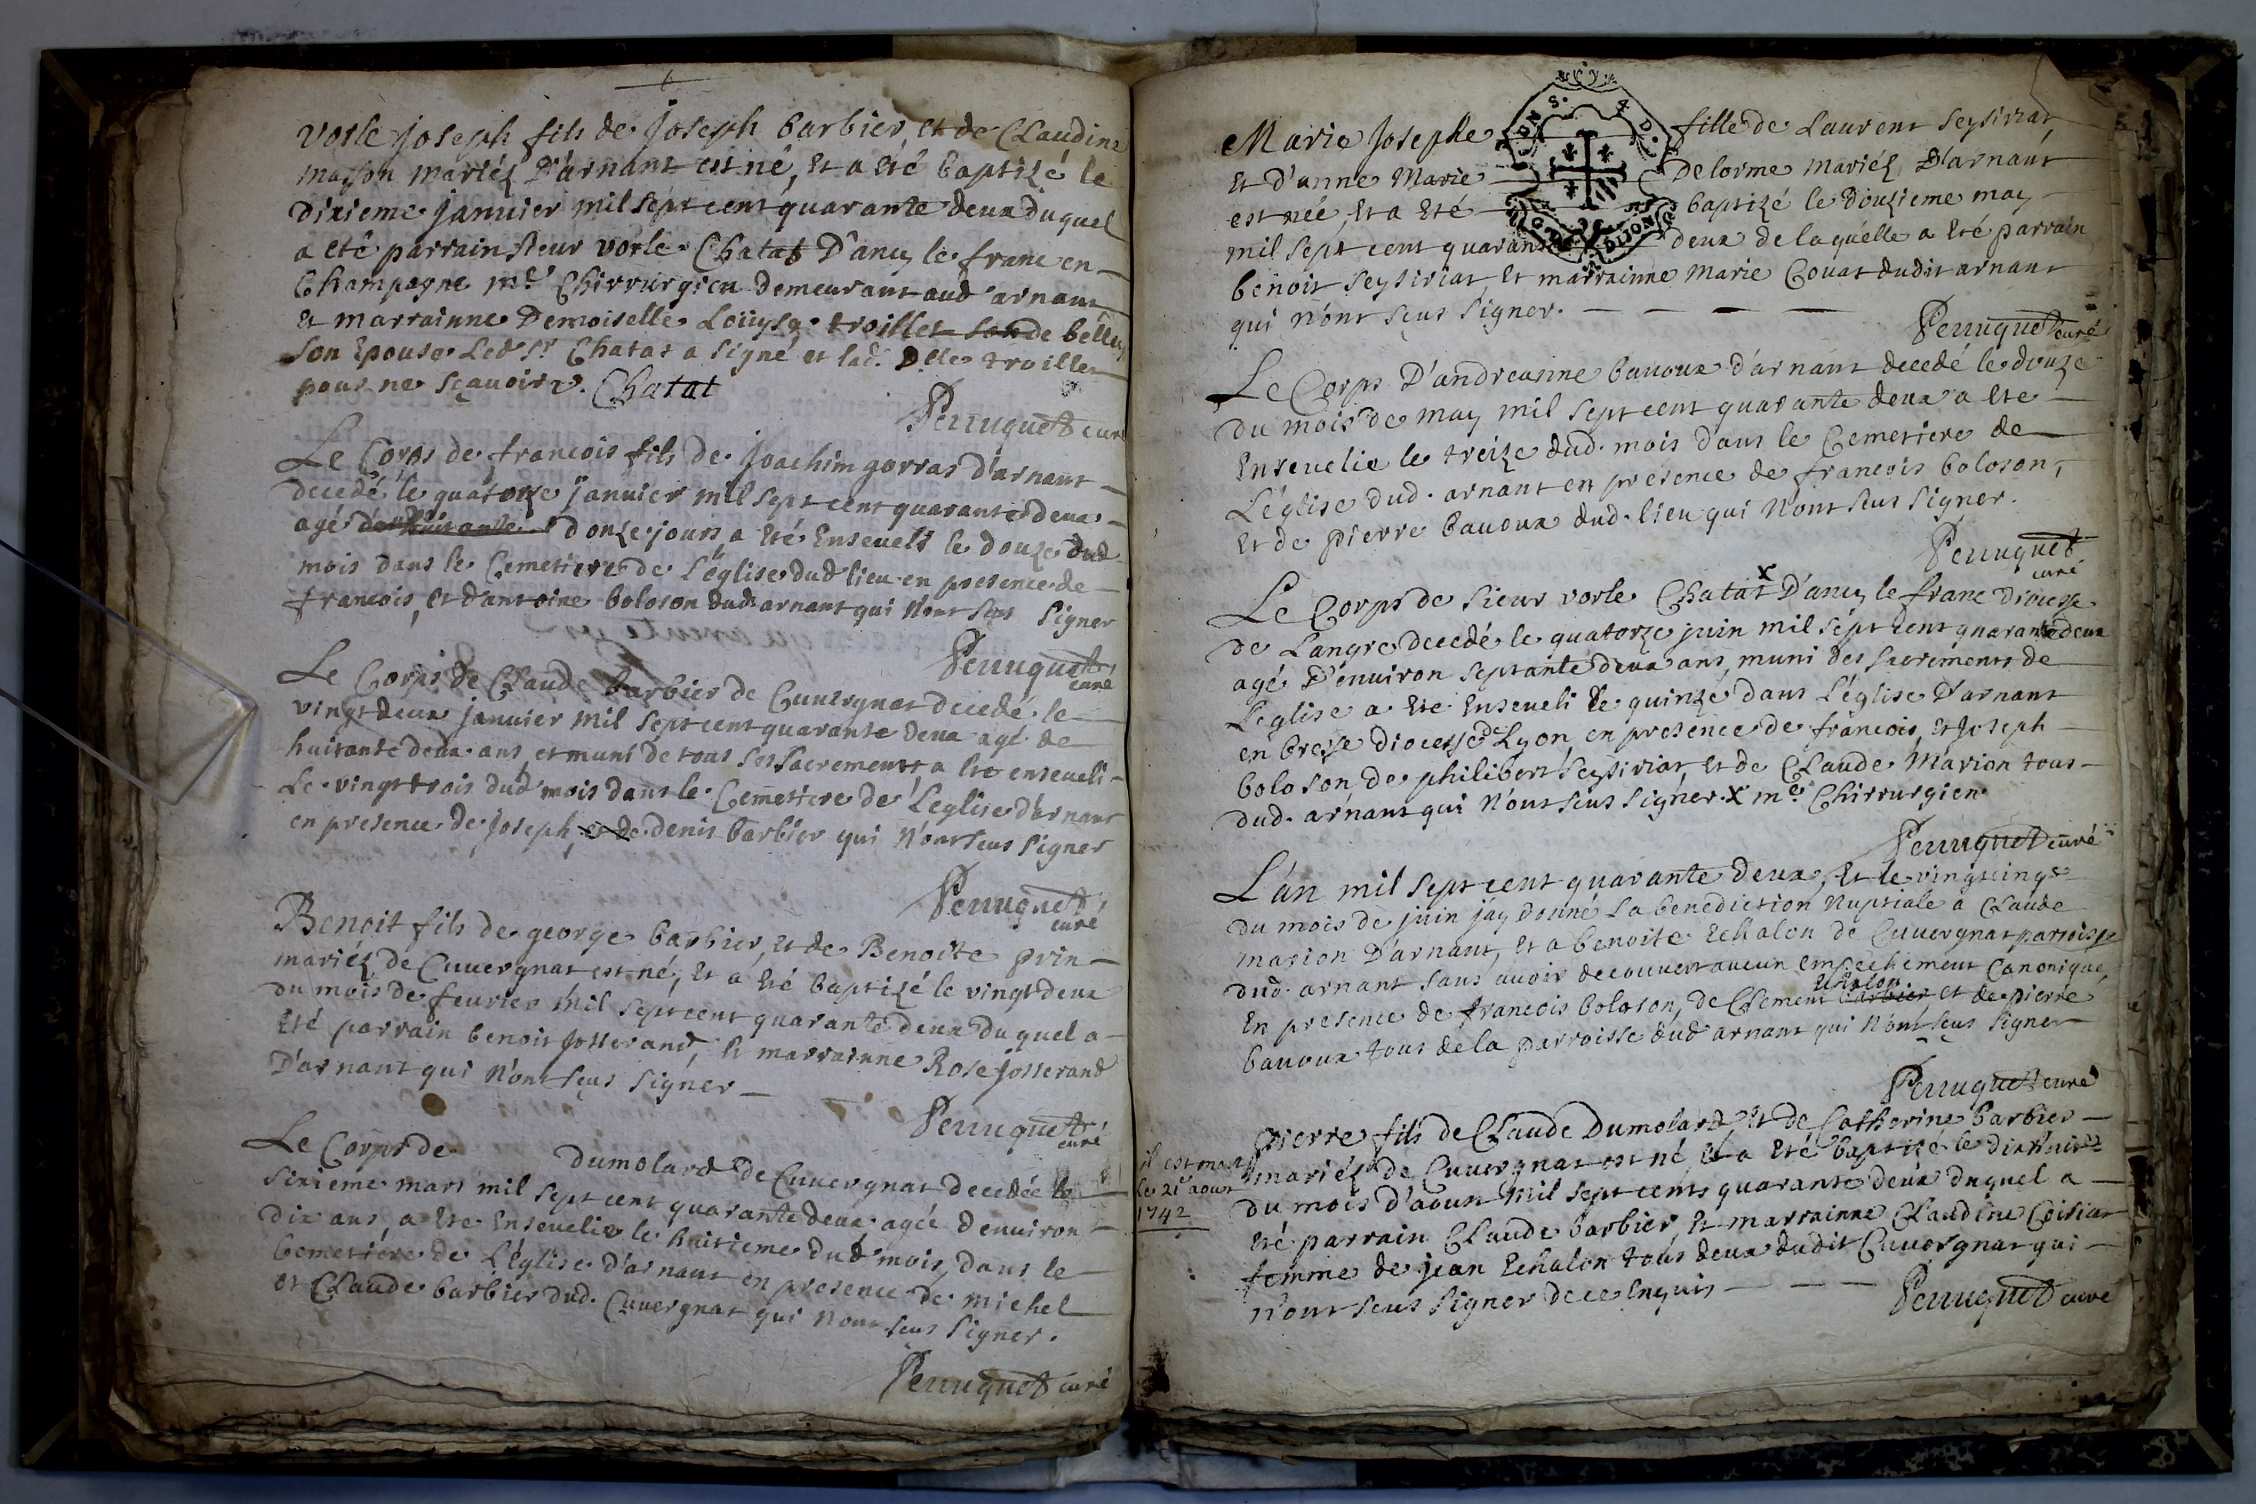 vorle joseph fils de joseph barbier et de Claudine
masson mariéz D'arnant est né, et a été baptizé le
dixieme janvier mil sept cent quarante deux duquel
a été parrain sieur vorle Chatat D'ancy le franc en
Champagne me Chirrurgien demeurant aud arnant
et marrainne Demoiselle Loüyse troillet de belley
son Epouse Led Sr Chatat a signé et lad. Delle troillet
pour ne sçavoir. Chatat
Perruquet curé
Le Corps de francois fils de joachim gorras d'arnant
decedé le quatorze janvier mil sept cent quarante deux
agé de douze jours a été Enseveli le douze dud
mois dans le Cemetiere de L'église dud lieu en presence de
francois, et d'antoine boloson dud arnant qui n'ont sçus signer
Perruquet
curé
Le Corps de Claude barbier de Cuvergnat decedé le
vingt deux janvier mil sept cent quarante deux agé de
huitante deux ans, et muni de tous ses sacrements a été enseveli
Le vingt trois dud mois dans le Cemetiere de L'eglise d'arnant
en presence de joseph, et de denis barbier qui n'ont sçus signer
Perruquet
curé
Benoit fils de george barbier, et de Benoite prin
mariéz de Cuvergnat est né, et a été baptizé le vingt deux
du mois de fevrier mil sept cent quarante deux du quel a
Eté parrain benoit josserand, et marrainne Rose josserand
D'arnant qui n'ont sçus signer
Perruquet
curé
Le Corps de dumolard de Cuvergnat decedée le
sixieme mars mil sept cent quarante deux agée denviron
dix ans, a été Ensevelie le huitieme dud mois, dans le
Cemetiere de L'église d'arnant en presence de michel
et Claude barbier dud. Cuvergnat qui n'ont sçus signer.
Perruquet curé
Marie josephe fille de Laurent seysiriat,
Et d'anne Marie Delorme mariéz D'arnant
est née, et a été baptizé le douzieme may
mil sept cent quarante deux de laquelle a été parrain
benoit seysiriat, et marrainne Marie Couat dudit arnant
qui n'ont sçus signer.
Perruquet curé
Le Corps D'andreanne bavoux d'arnant decedé le douze
du mois de may mil sept cent quarante deux a été
Ensevelie le treize dud. mois dans le Cemetiere de
L'église dud. arnant en présence de francois boloson,
Et de pierre bavoux dud. lieu qui n'ont sçus signer.
Perruquet
curé
Le Corps de sieur vorle Chatat x D'ancy le franc Diocesse
de Langre decedé le quatorze juin mil sept cent quarante deux
agé D'environ septante deux ans, muni des sacrements de
L'eglise a été Enseveli le quinze dans L'église d'arnant
en bresse diocesse de Lyon en presence de francois, et joseph
boloson, de philibert seysiriat, et de Claude Marion tous
dud. arnant qui n'ont sçus signer. x me Chirrurgien
Perruquet curé
L'an mil sept cent quarante deux, Et le vingt cinq
du mois de juin j'ay donné la benediction nuptiale a Claude
marion D'arnant, et a benoite Echalon de Cuvergnat parroisse
dud. arnant sans avoir decouvert aucun empechement Canonique,
En presence de francois boloson, de Clement Echalon et de pierre
bavoux tous de la parroisse dud arnant qui n'ont sçus signer
Perruquet curé
il est mort
le 21e aout
1742
pierre fils de Claude Dumolard, et de Catherine barbier
mariéz de Cuvergnat est né, et a été baptizé le dixhuit
du mois d'aoust mil sept cents quarante deux duquel a
été parrain Claude barbier et marrainne Claudine Ceisiriat
femme de jean Echalon tous deux dudit Cuvergnat qui
n'ont sçus signer de ce Enquis
Perruquet curé